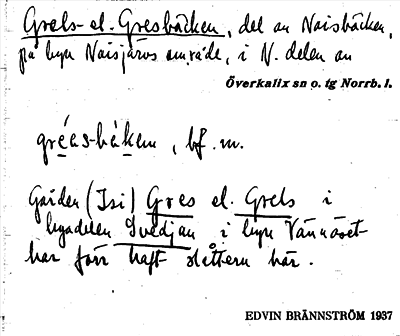 Grels- el. Gresbäcken, del av Naisbäcken,
på byn Naisjärvs område, i N. delen av
Överkalix sn o. tg Norrb. l.
gréas-bäken, bf. m.
Gården (Isi) Gres el. Grels i
bydelen Svedjan i byn Vännäset
har förr haft slåttern här.
EDVIN BRÄNNSTRÖM 1937